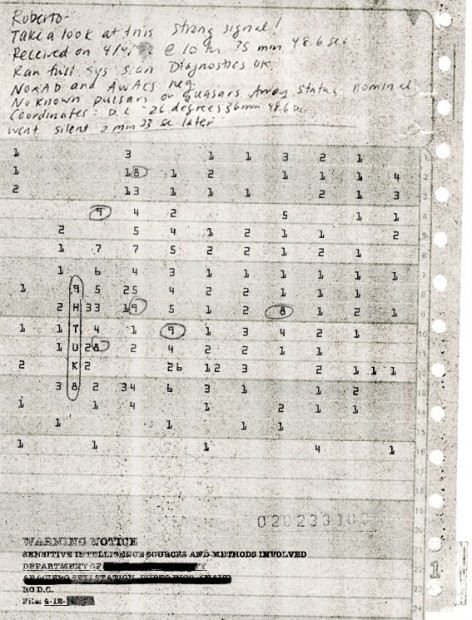 Roberto-
Take a look at this strong signal!
Received on 4/4/ 2 @ 10 hr 35 min 48.6 sec
Ran full sys scan Diagnostics OK
NORAD and AWACS neg.
No known pulsars or quasars Array status nominal
Coordinates: D.C -26 degrees 36 min 48.6 s
went silent 2 min 33 se later
1 3 1 1 3 2 1
1 18 1 2 1 1 1 4
2 13 1 1 1 2 1 3
9 4 2 5 1 1
2 5 4 1 2 1 1 2
1 7 7 5 2 2 1 2 1
1 6 4 3 1 1 1 1 1 1
1 9 5 25 4 2 2 1 1 1
2 H 33 19 5 1 2 8 1 2 1
1 1 T 4 1 9 1 3 4 2 1
1 U 28 2 4 2 2 1 1
2 K 2 26 12 3 2 1 1 1
3 8 2 34 6 3 1 1 2
1 1 4 1 2 1 1
1 1 1 1
1 1 1 4 1
WARNING NOTICE
SENSITIVE INTELLIGENCE SOURCES AND METHODS INVOLVED
DEPARTMENT OF
D.C.
File: 4-12-
1